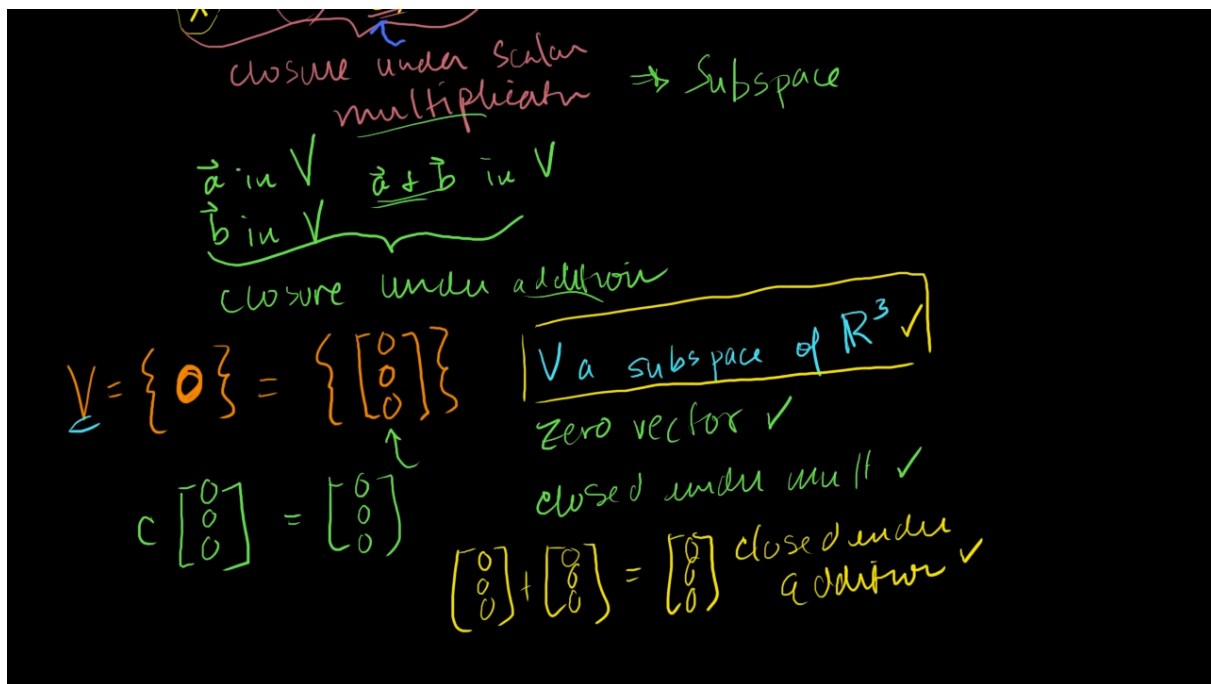 closure under scalar
multiplicatn ⇒ Subspace
a⃗ in V a⃗ + b⃗ in V
b⃗ in V
closure under addition
V = { 0 } = { [0 0 0] } V a subspace of R³ ✓
zero vector ✓
closed under mult ✓
c [0 0 0] = [0 0 0]
[0 0 0] + [0 0 0] = [0 0 0] closed under
addition ✓